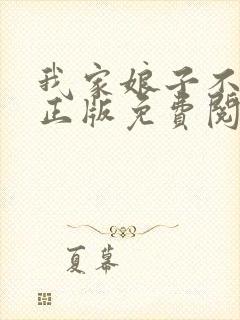 我家娘子不
正版免費閱
夏蟇